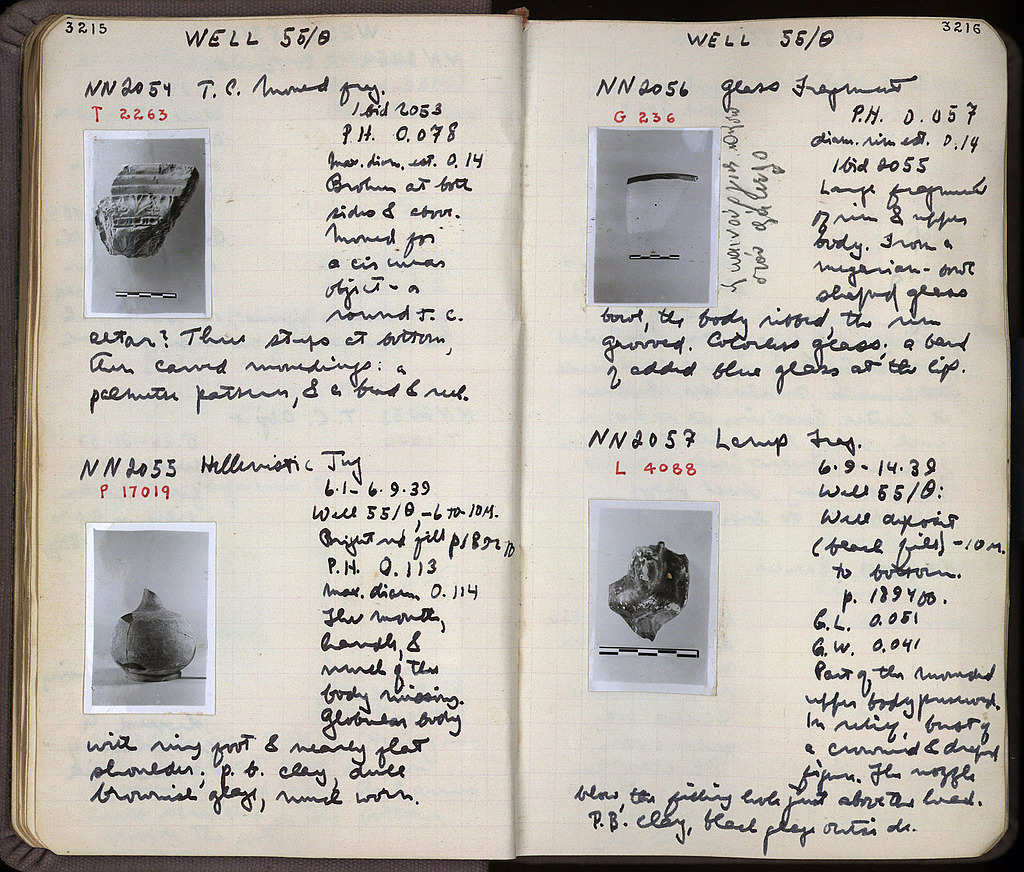 3215
WELL 55/Θ
NN2054 T.C. Mould frag.
T 2263
Ibid 2053
P.H. 0.078
Max. diam. est. 0.14
Broken at both
sides & above.
Mould for
a circular
object - a
round T.C.
altar? Three steps at bottom,
then carved mouldings: a
palmette pattern, & a bead & reel.
NN2055 Hellenistic Jug
P 17019
6.1-6.9.39
Well 55/Θ, -6 to -10 M.
Bright red fill p. 1892
P.H. 0.113
Max. diam 0.114
The mouth,
handle, &
much of the
body missing.
Globular body
with ring foot & nearly flat
shoulder; p. b. clay, dull
brownish glaze, much worn.
3216
WELL 55/Θ
NN2056 Glass Fragment
G 236
P.H. 0.057
diam. rim est. 0.14
Ibid 2055
Large fragment
of rim & upper
body. From a
megarian-bowl
shaped glass
bowl, the body ribbed, the rim
grooved. Colorless glass; a band
of added blue glass at the lip.
NN2057 Lamp Frag.
L 4088
6.9-14.39
Well 55/Θ:
Well deposit
(black fill) -10 M.
to bottom.
p. 1894
G.L. 0.051
G.W. 0.041
Part of the moulded
upper body preserved.
In relief, bust of
a crowned & draped
figure. The nozzle
below, the filling hole just above the head.
P.B. clay, black glaze outside.